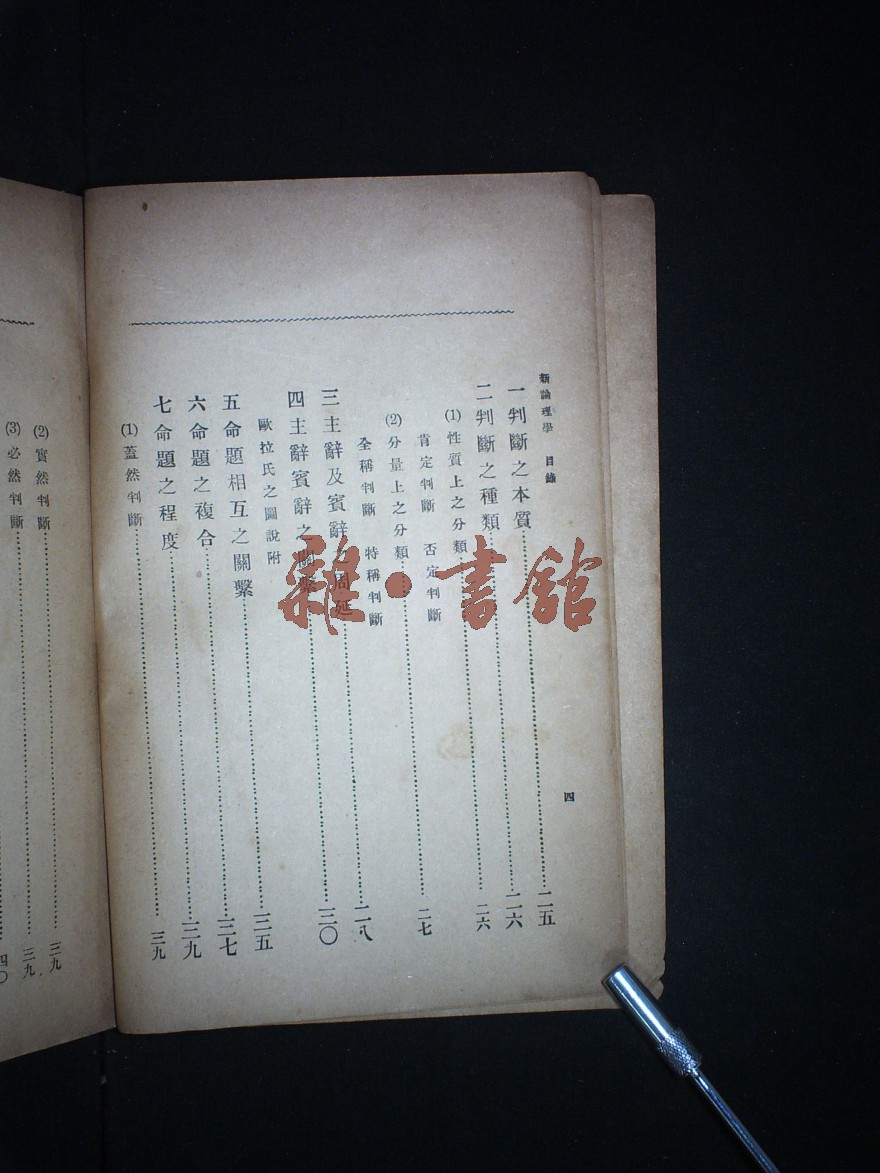 新論理學　目錄
四
一判斷之本質……二五
二判斷之種類……二六
(1)性質上之分類……二六
肯定判斷　否定判斷
(2)分量上之分類……二七
全稱判斷　特稱判斷
三主辭及賓辭之周延……二八
四主辭賓辭之關繫……三〇
歐拉氏之圖說附
五命題相互之關繫……三五
六命題之複合……三七
七命題之程度……三九
(1)蓋然判斷……三九
(2)實然判斷……三九
(3)必然判斷……三九
四〇
雜·書館